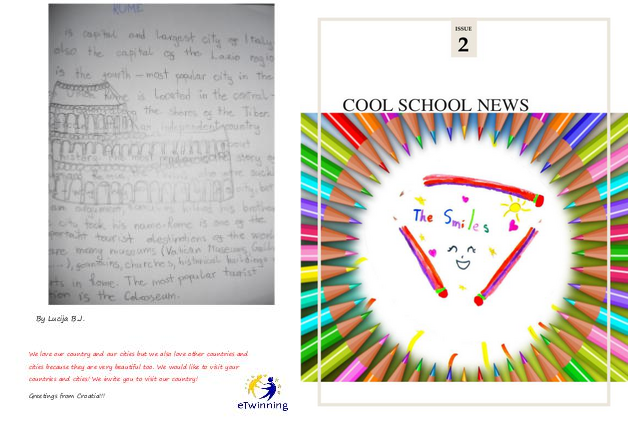 ROME
is capital and largest city of Italy
also the capital of the Lazio regio
is the fourth - most popular city in the
Union. Rome is located in the central-
the shores of the Tiber.
an independent country
history. The most popular story of
Rome
city, but
an argument, his brother
city took his name. Rome is one of the
portant tourist destinations of the world
are many museums (Vatican Museums,
....), fountains, churches, historical buildings
rts in Rome. The most popular tourist
tion is the Colosseum.
By Lucija B.J.
We love our country and our cities but we also love other countries and
cities because they are very beautiful too. We would like to visit your
countries and cities! We invite you to visit our country!
Greetings from Croatia!!!
eTwinning
ISSUE
2
COOL SCHOOL NEWS
The Smiles